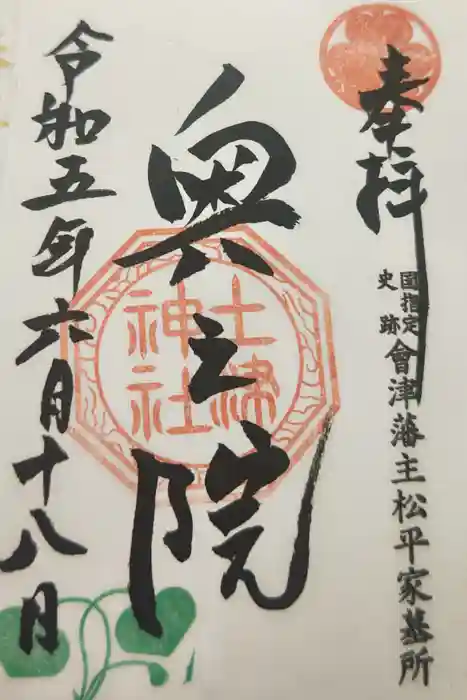 奉拝
国指定
史跡
會津藩主松平家墓所
奥之院
土津
神社
令和五年六月十八日